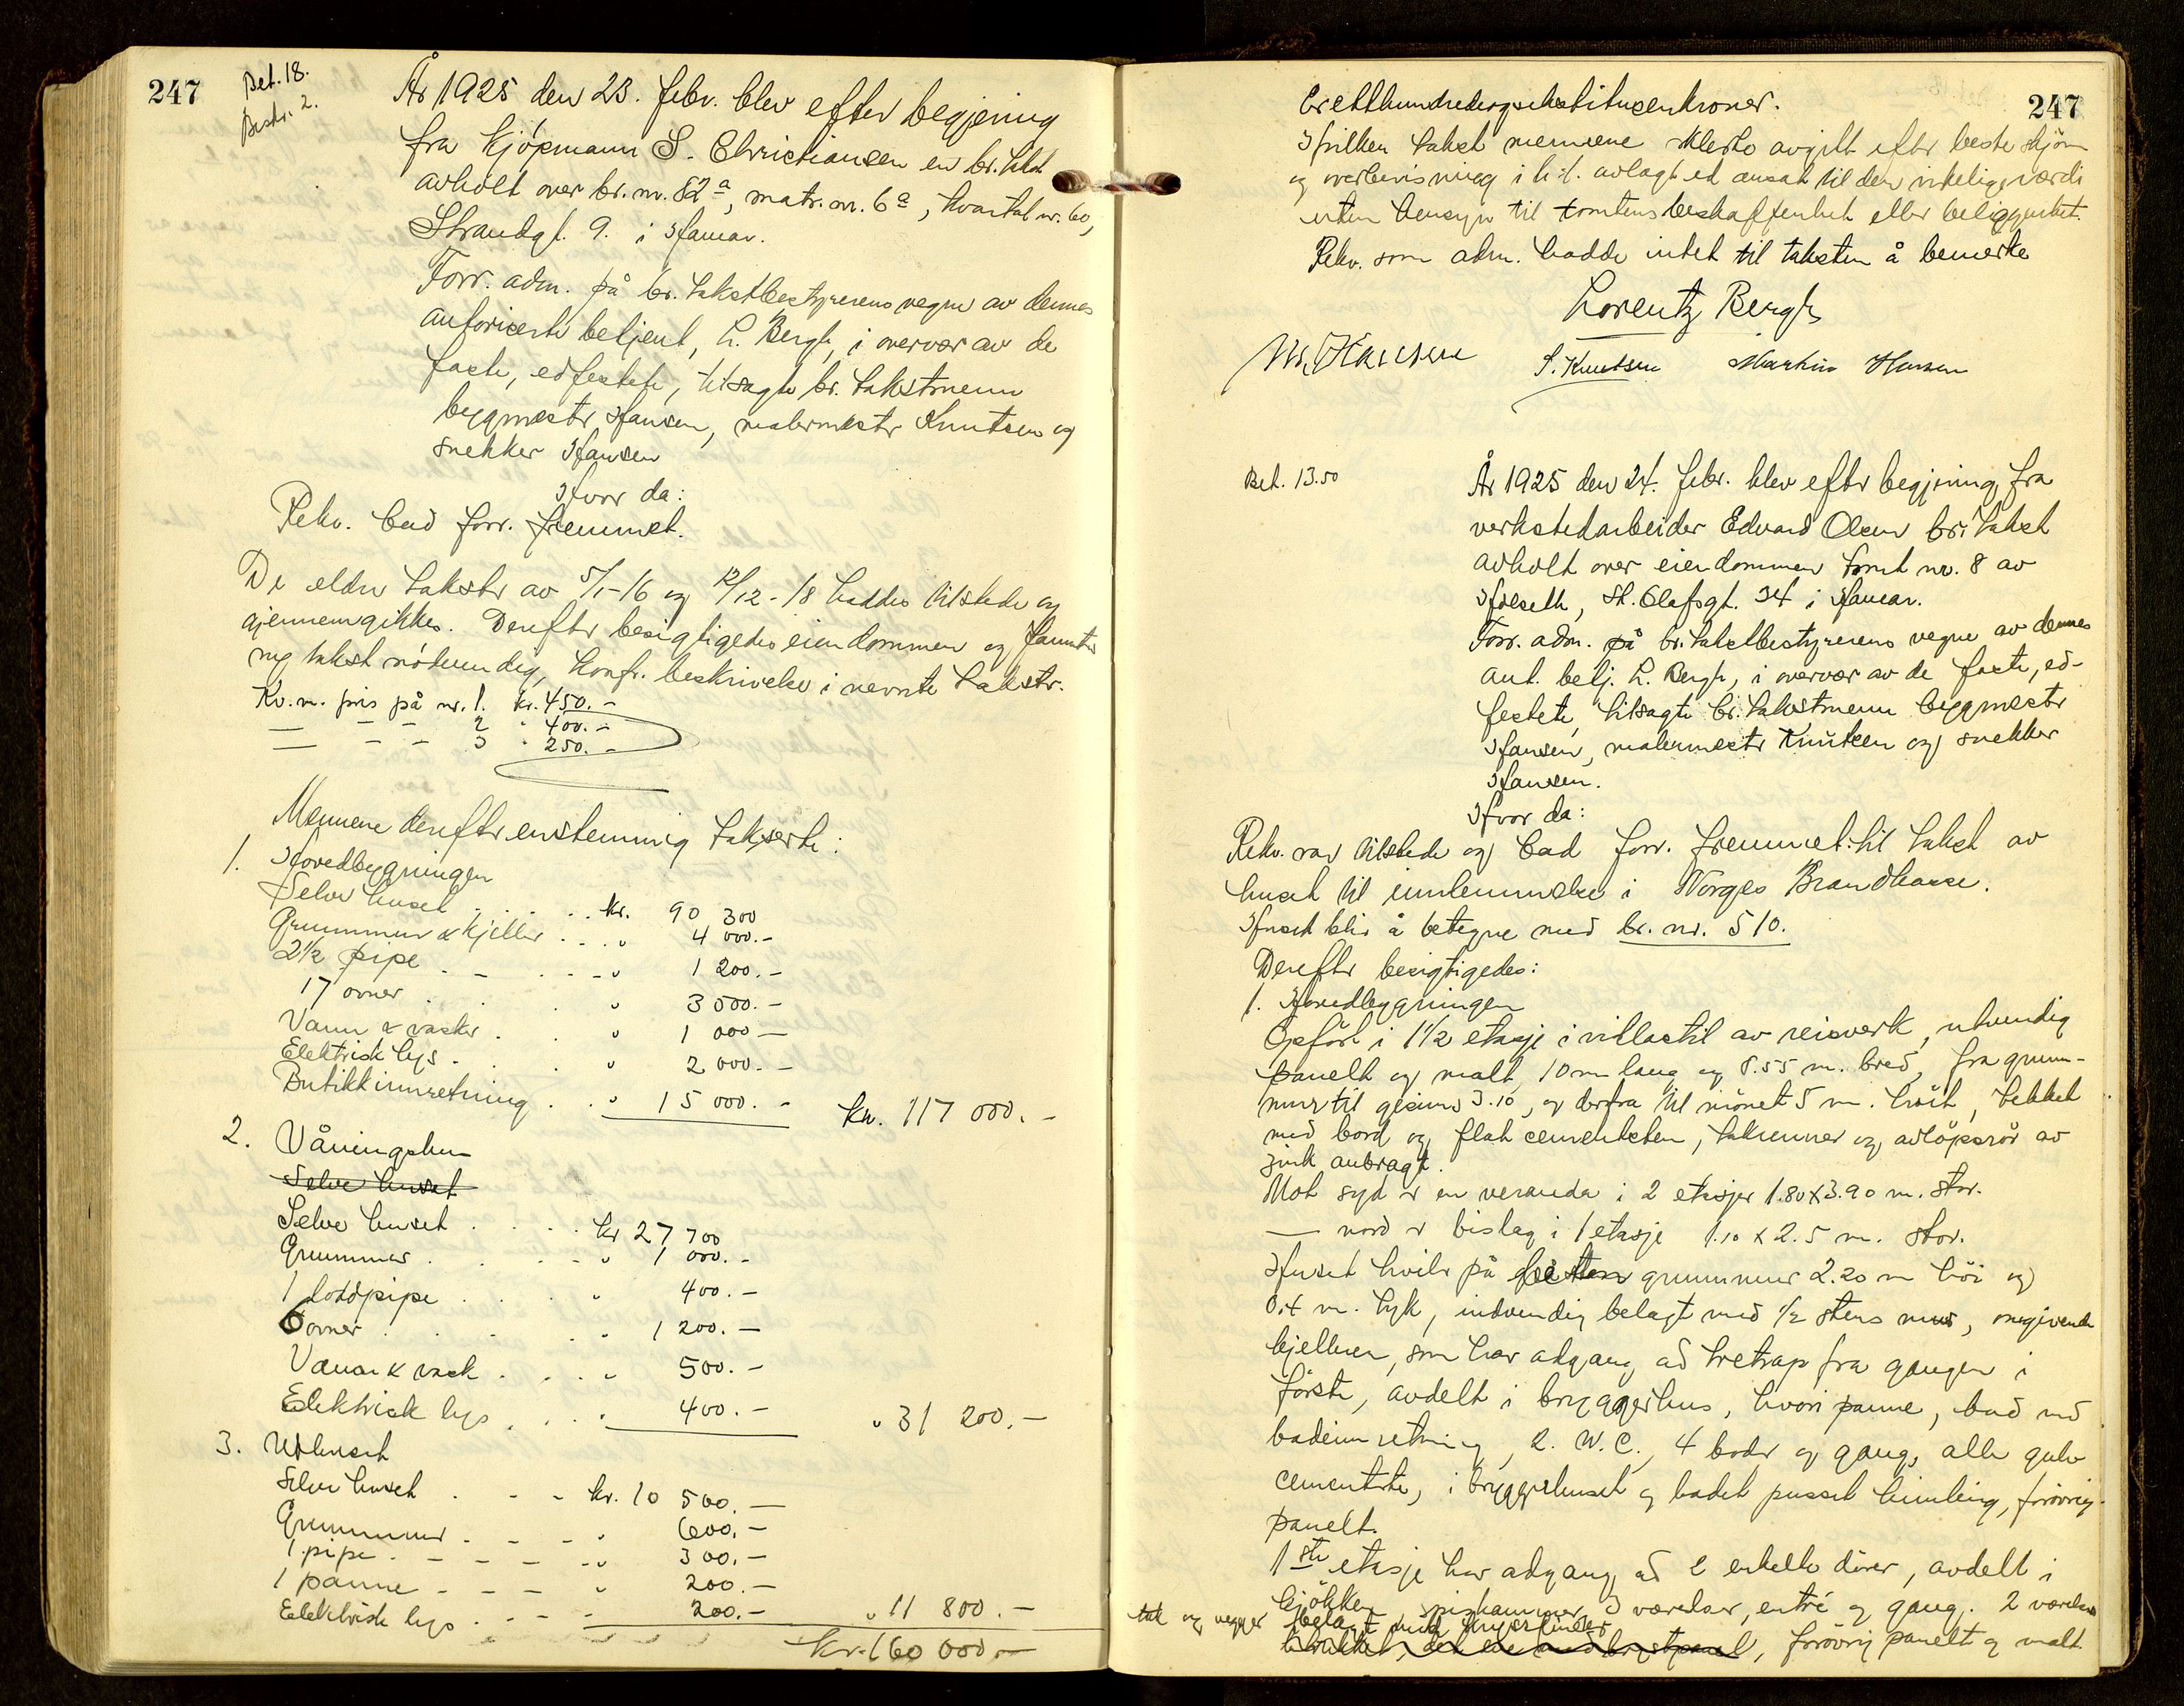 247
Bet. 18.
Beskr. 2.
År 1925 den 23. febr. blev efter begjering
fra kjøpmann S. Christiansen en br. takst
avholt over br. nr. 82a, matr. nr. 6a, kvartal nr. 60,
Strandgt. 9. i Hamar.
Forr. adm. på br. takstbestyrerens vegne av dennes
autoriserte betjent, L. Bergh, i overvær av de
faste, edfestete, tilsagte br. takstmenn
byggmestr Hansen, malermestr Knutsen og
snekker Hansen
Hvor da:
Rekv. bad forr. fremmet.
De eldre takstr av 5/1-16 og 12/12-18 haddes tilstede og
gjennemgikkes. Dereftr besigtigedes eiendommen og fanntes
ny takst nödvendig, konfr. beskrivelse i nevnte takstr.
Kv.m. pris på nr. 1. kr. 450.-
— — - 2 " 400.-
— — - 3 " 250.-
Mennene dereftr enstemmig takserte:
1. Hovedbygningen
Selve huset . . . . . kr. 90 300
Grunnmur & kjeller . . . " 4 000.-
2½ pipe . - . . . - " 1 200.-
17 ovner . . . " 3 500.-
Vann & vaskr . . . " 1 000 —
Elektrisk lys . . . " 2 000.-
Butikkinnretning . . " 15 000.- kr. 117 000.-
2. Våningshus
Selve huset
Selve huset . . . . kr 27 700
Grunnmur . . . - " 1 000.-
1 loddpipe . . . " 400.-
6 ovner . . . . " 1 200.-
Vann & vask . . . . " 500.-
Elektrisk lys . . . " 400.- " 31 200.-
3. Uthuset
Selve huset . - - kr. 10 500.—
Grunnmur . - - - " 600.-
1 pipe . - - - - " 300.-
1 panne - - - " 200.-
Elektrisk lys . - - - 200.- " 11 800.-
kr. 160 000.-
247
Eretthundredeogsekstitusenkroner.
Hvilken takst mennene erklerte avgitt eftr beste skjön
og overbevisning i h.t. avlagt ed ansat til den virkelige værdi
uten hensyn til tomtens beskaffenhet eller beliggenhet.
Rekv. som adm. hadde intet til taksten å bemerke
Lorentz Bergh
M. Hansen S. Knutsen Martin Hansen
Bet. 13.50
År 1925 den 24. febr. blev eftr begjering fra
verkstedarbeider Edvard Olsen br. takst
avholt over eiendommen tomt nr. 8 av
Holseth, St. Olafsgt. 34 i Hamar.
Forr. adm. på br. takstbestyrerens vegne av dennes
aut. betj. L. Bergh, i overvær av de faste, ed-
festete, tilsagte br. takstmenn byggmestr
Hansen, malermestr Knutsen og snekker
Hansen.
Hvor da:
Rekv. var tilstede og bad forr. fremmet til takst av
huset til innlemmelse i Norges Brandkasse.
Huset blir å betegne med br. nr. 510.
Dereftr besigtigedes:
1. Hovedbygningen
Opfört i 1½ etasje i villastil av reisverk, utvendig
panelt og malt, 10 m lang og 8.55 m. bred, fra grunn-
mur til gesims 3.10, og derfra til mönet 5 m. höit, tekket
med bord og flat cementsten, takrenner og avlöpsrör av
zink anbragt.
Mot syd er en veranda i 2 etasjer 1.80 x 3.90 m. stor.
— nord er bislag i 1 etasje 1.10 x 2.5 m. stor.
Huset hviler på grunnmur 2.20 m höi og
0.4 m. tyk, indvendig belagt med ½ stens mur, omgivende
kjelleren, som har adgang ad tretrap fra gangen i
förste, avdelt i bryggerhus, hvori panne, bad med
badeinnretning, 2. W.C., 4 boder og gang, alle gulv
cementerte, i bryggerhuset og badet pusset himling, forövrig
panelt.
1ste etasje har adgang ad 2 enkelte dörer, avdelt i
kjökken, spiskammer, 3 værelser, entré og gang. 2 værelsers
tak og vegger belagt med
, forövrig panelt og malt